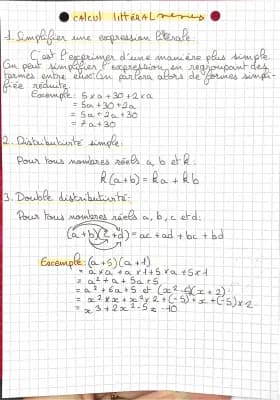 CALCUL LITTÉRAL
1. Simplifier une expression litérale:
C'est l'exprimer d'une manière plus simple.
On peut simplifier l'expression en regroupant des
termes entre eux. On parlera alors de formes simpli-
fiée réduite.
Excemple: 5 x a + 30 + 2 x a
= 5a + 30 + 2a
= 5a + 2a + 30
= 7a + 30
2. Distributivité simple:
Pour tous nombres réels a, b et k:
k(a+b) = ka + kb
3. Double distributivité:
Pour tous nombres réels a, b, c et d:
(a+b)(c+d) = ac + ad + bc + bd
Excemple: (a+5)(a+1)
= a x a + a x 1 + 5 x a + 5 x 1
= a² + a + 5a + 5
= a² + 6a + 5 et (x² - 5)(x + 2)
= x² x x + x² x 2 + (-5) x x + (-5) x 2
= x³ + 2x² - 5x - 10